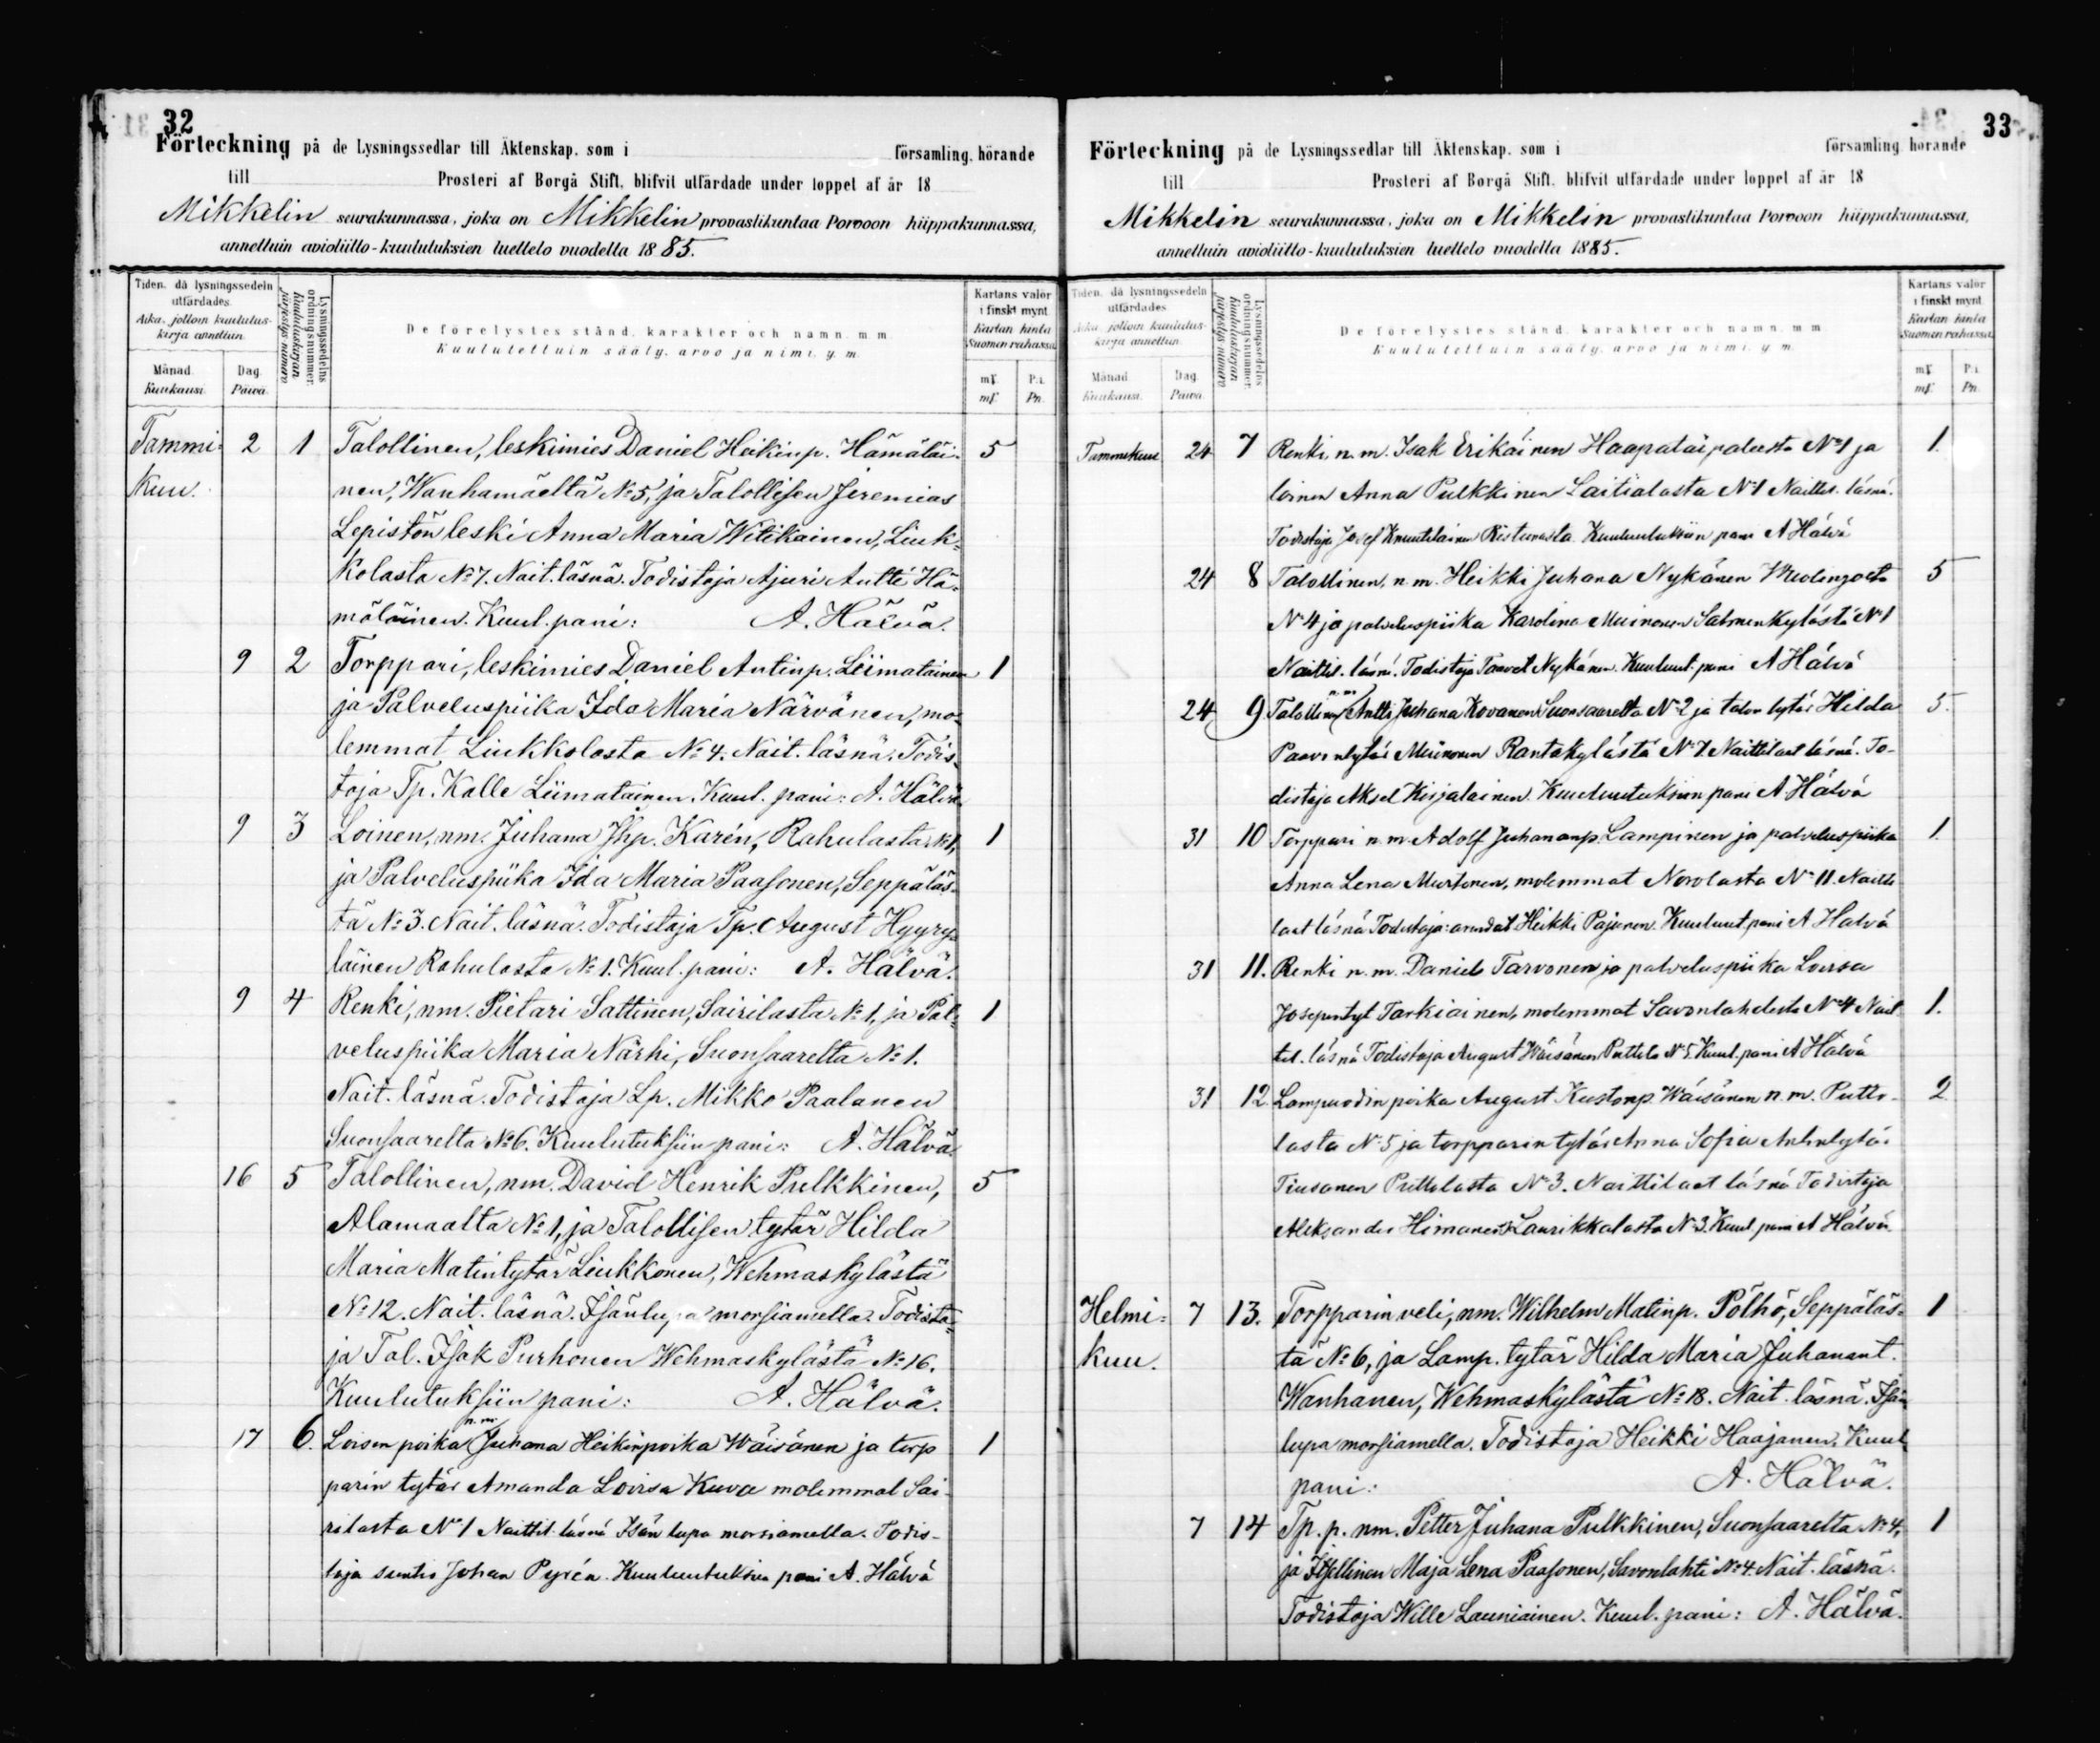 32
Förteckning på de Lysningssedlar till Äktenskap, som i församling, hörande
till Prosteri af Borgå Stift, blifvit utfärdade under loppet af år 18
Mikkelin seurakunnassa, joka on Mikkelin provastikuntaa Porvoon hiippakunnassa,
annettuin avioliitto-kuulutuksien luettelo vuodelta 1885.
Tiden, då lysningssedeln utfärdades.
Aika, jolloin kuulutuskirja annettun.
Månad. Kuukausi.
Dag. Päivä.
Lysningssedelns ordningsnummer
Kuulutuskirjan järjestys-numero
De förelystes stånd, karakter och namn m. m.
Kuulutettuin sääty, arvo ja nimi, y. m.
Kartans valör i finskt mynt.
Kartan hinta Suomen rahassa.
mk mk. P:i. Pn.
Tammi- 2 1 Talollinen, leskimies Daniel Heikinp. Hämäläi- 5
kuu. nen, Wanhamäeltä No 5, ja Talollisen Jeremias
Lepistön leski Anna Maria Witikainen, Liuk-
kolasta No 7. Nait. läsnä. Todistaja Ajuri Antti Hä-
mäläinen. Kuul. pani: A. Hälvä.
9 2 Torppari, leskimies Daniel Antinp. Liimatainen 1
ja Palveluspiika Ida Maria Närvänen, mo-
lemmat Liukkolasta No 4. Nait. läsnä. Todis-
taja Tp. Kalle Liimatainen. Kuul. pani: A. Hälvä
9 3 Loinen, nm. Juhana Jhp. Karén, Rahulasta No 1, 1
ja Palveluspiika Ida Maria Paasonen, Seppäläs-
tä No 3. Nait. läsnä. Todistaja Tp. August Hyyry-
läinen Rahulasta No 1. Kuul. pani: A. Hälvä.
9 4 Renki, nm. Pietari Sattinen, Sairilasta No 1, ja Pal- 1
veluspiika Maria Närhi, Suonsaarelta No 1.
Nait. läsnä. Todistaja Lp. Mikko Paalanen
Suonsaarelta No 6. Kuulutuksiin pani: A. Hälvä.
16 5 Talollinen, nm. David Henrik Pulkkinen, 5
Alamaalta No 1, ja Talollisen tytär Hilda
Maria Matintytär Liukkonen, Wehmaskylästä
No 12. Nait. läsnä. Isänlupa morsiamella. Todista-
ja Tal. Isak Purhonen Wehmaskylästä No 16.
Kuulutuksiin pani: A. Hälvä.
17 6. Loisen poika n. m. Juhana Heikinpoika Wäisänen ja torp 1
parin tytär Amanda Lovisa Kuva molemmat Sai-
rilasta No 1 Naittil. läsnä Isän lupa morsiamella. Todis-
taja suntio Johan Pyrén. Kuuluutuksiin pani A. Hälvä
33
Förteckning på de Lysningssedlar till Äktenskap, som i församling hörande
till Prosteri af Borgå Stift, blifvit utfärdade under loppet af år 18
Mikkelin seurakunnassa, joka on Mikkelin provastikuntaa Porvoon hiippakunnassa,
annettuin avioliitto-kuulutuksien luettelo vuodelta 1885.
Tiden, då lysningssedeln utfärdades
Aika, jolloin kuulutuskirja annettun.
Månad Kuukausi.
Dag. Päivä.
Lysningssedelns ordningsnummer
Kuulutuskirjan järjestys-numero
De förelystes stånd, karakter och namn m. m.
Kuulutettuin sääty, arvo ja nimi, y. m.
Kartans valör i finskt mynt.
Kartan hinta Suomen rahassa.
mk mk. P:i. Pn.
Tammikuu 24 7 Renki, n. m. Isak Erikäinen Haapataipaleesta No 1 ja 1.
loinen Anna Pulkkinen Laitialasta No 1 Naittil. läsnä.
Todistaja Josef Knuutilainen Kuuluutuksiin pani A Hälvä
24 8 Talollinen, n. m. Heikki Juhana Nykänen 5
No 4 ja palveluspiika Karolina Muinonen Salmenkylästä No 1
Naittil. läsnä. Todistaja Taavet Nykänen. Kuuluut. pani A Hälvä
24 9. Talollinen n. m. Antti Juhana Kovanen Suonsaarelta No 2 ja talon tytär Hilda 5.
Paavontytär Muinonen Rantakylästä No 7. Naittilaat läsnä. To-
distaja Aksel Kirjalainen. Kuuluutuksiin pani A Hälvä
31 10 Torppari n. m. Adolf Juhananp. Lampinen ja palveluspiika 1.
Anna Lena Murtonen, molemmat Norolasta No 11. Naitti
laat läsnä Todistaja: Heikki Pajunen. Kuuluut. pani A Hälvä
31 11. Renki n. m. Daniel Tarvonen ja palveluspiika Lovisa
Josepintyt Tarkiainen, molemmat Savonlahdesta No 4 Nait 1.
til. läsnä Todistaja August Wäisänen Puttola No 5. Kuul. pani A Hälvä
31 12. Lampuodin poika August Kustonp. Wäisänen n. m. Putto- 2
lasta No 5 ja torpparin tytär Anna Sofia Antintytär
Tiusanen Puttolasta No 3. Naittilaat läsnä Todistaja
Aleksander Himanen Laurikkalasta No 3. Kuul. pani A Hälvä.
Helmi- 7 13. Torpparin veli, nm. Wilhelm Matinp. Pölhö, Seppäläs- 1
kuu. tä No 6, ja Lamp. tytär Hilda Maria Juhanant.
Wanhanen, Wehmaskylästä No 18. Nait. läsnä. Isän
lupa morsiamella. Todistaja Heikki Haajanen. Kuul.
pani: A. Hälvä.
7 14 Tp. p. nm. Petter Juhana Pulkkinen, Suonsaarelta No 4, 1
ja Itsellinen Maja Lena Paasonen, Savonlahti No 4. Nait. läsnä.
Todistaja Wille Launiainen. Kuul. pani: A. Hälvä.